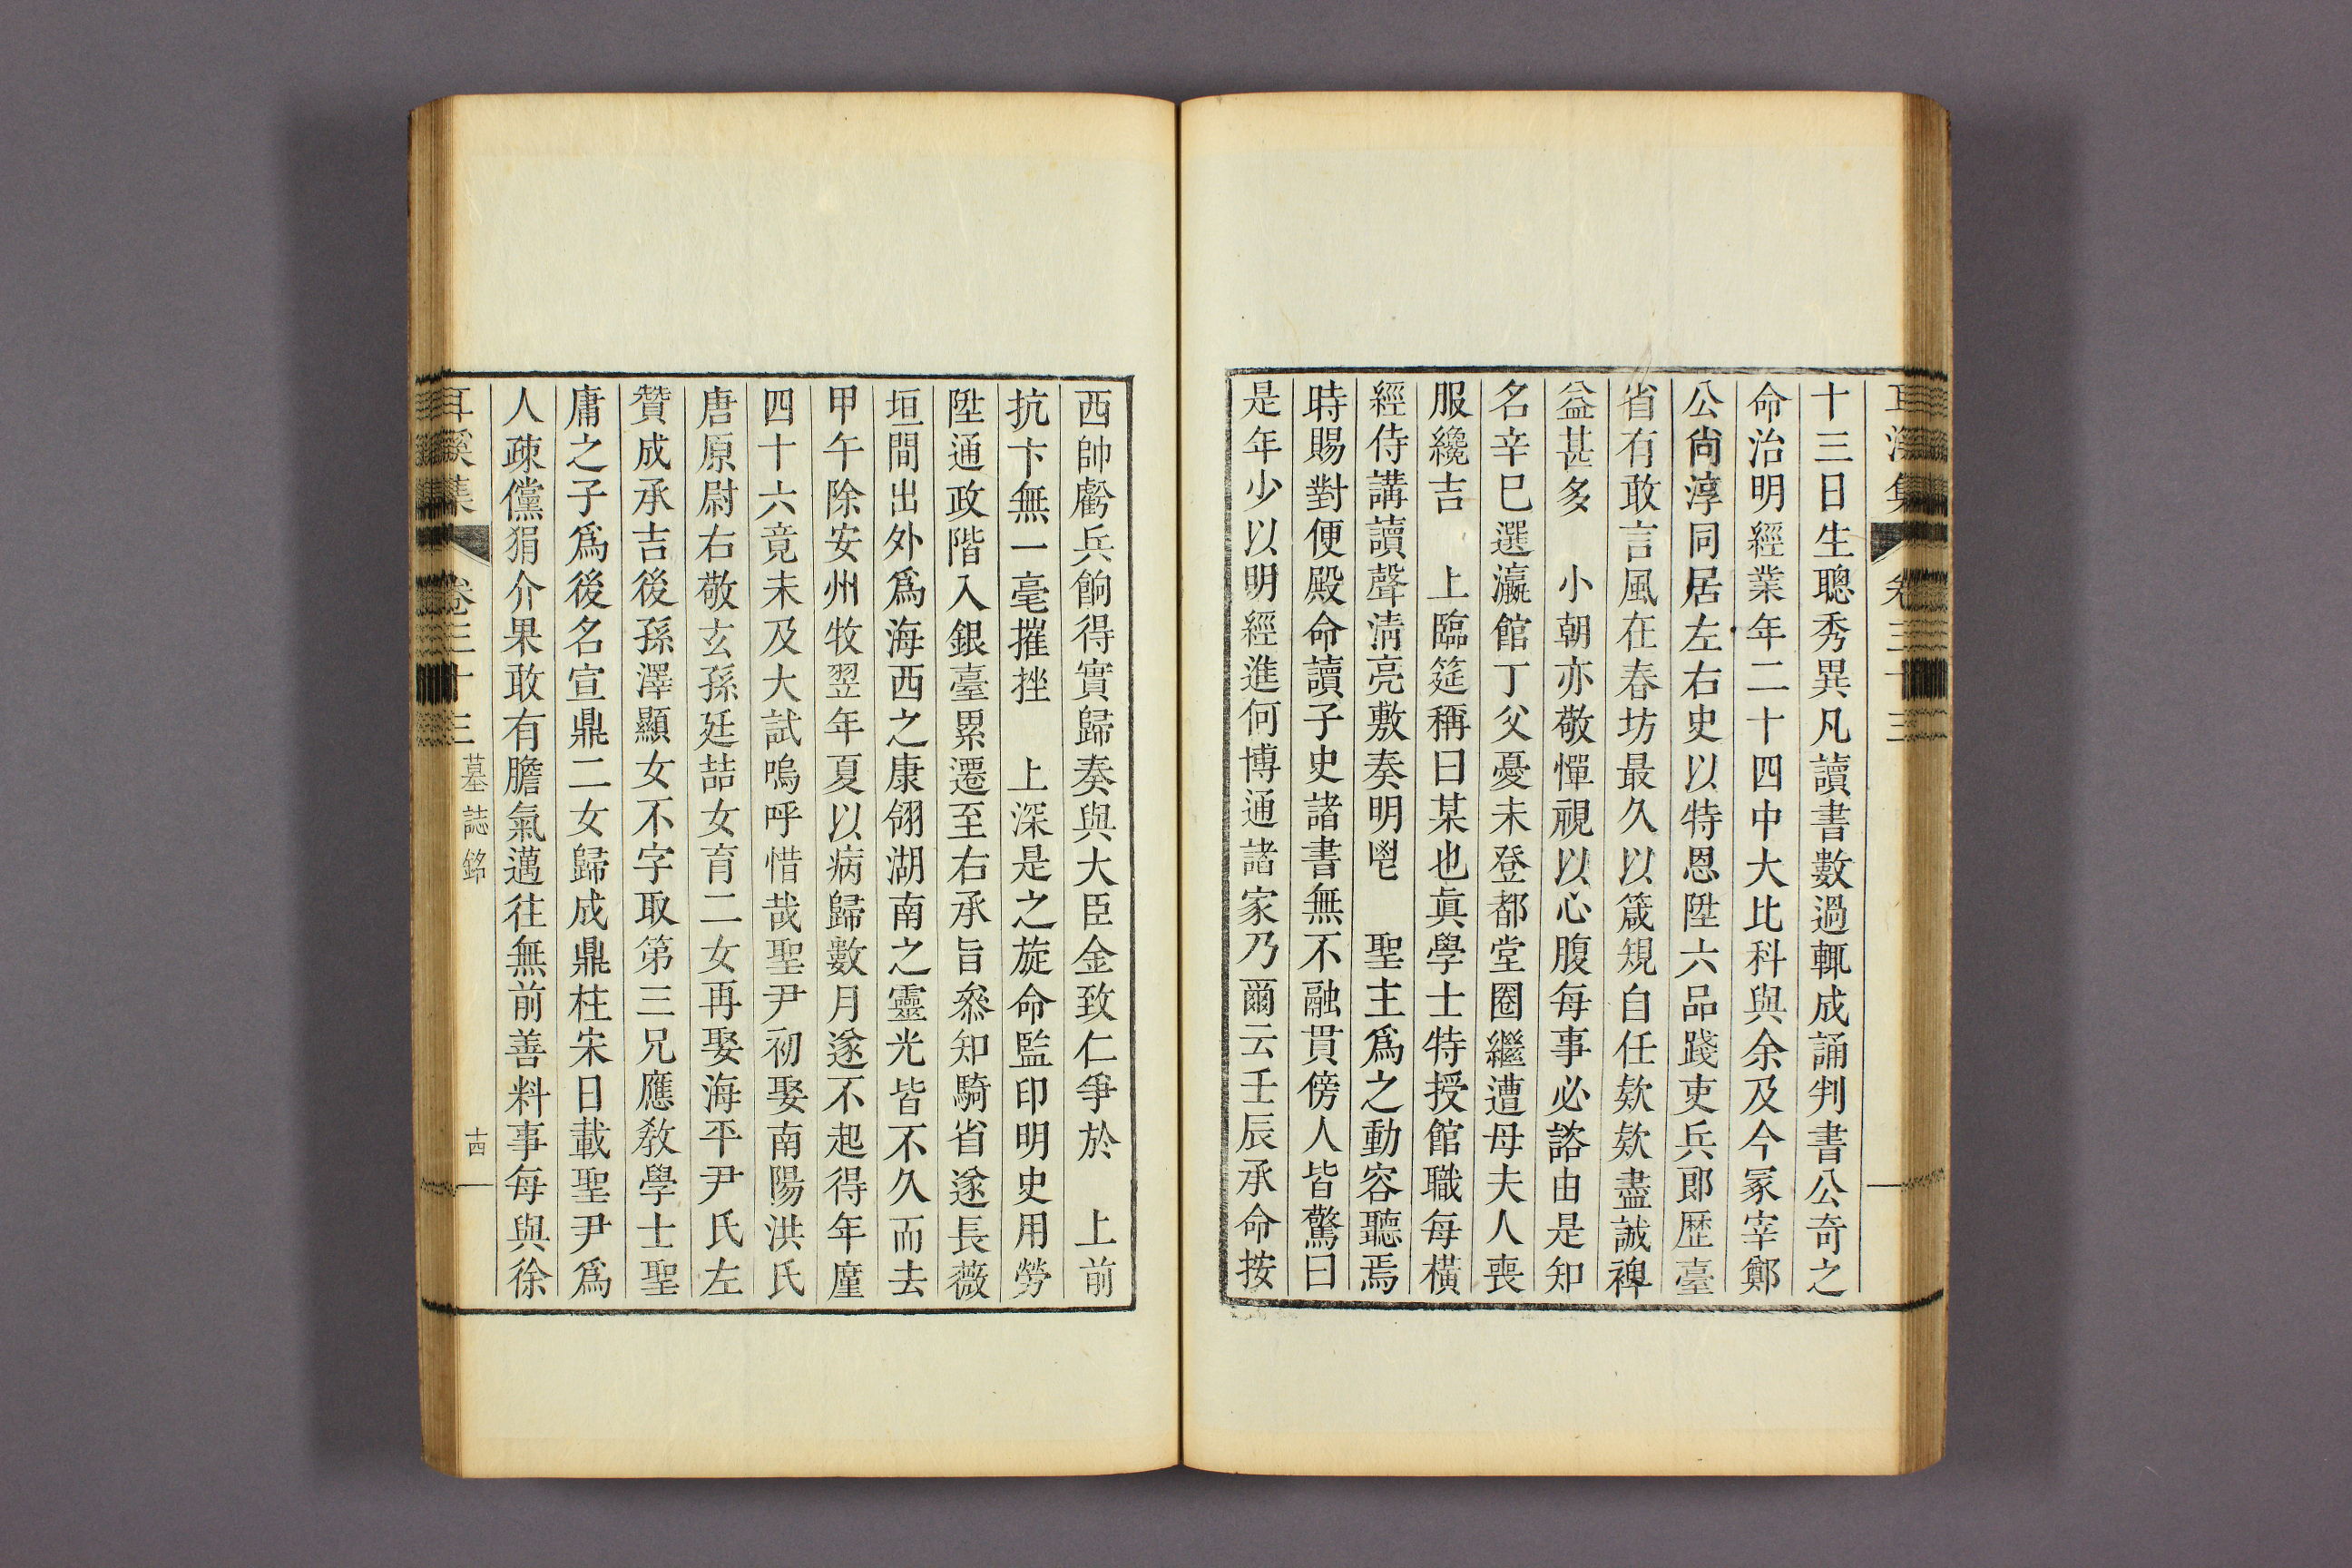 十三日生聰秀異凡讀書數過輒成誦判書公奇之
命治明經業年二十四中大比科與余及今冢宰鄭
公尙淳同居左右史以特恩陞六品踐吏兵郞歷臺
省有敢言風在春坊最久以箴規自任欵欵盡誠裨
益甚多　小朝亦敬憚視以心腹每事必諮由是知
名辛巳選瀛館丁父憂未登都堂圈繼遭母夫人喪
服纔吉　上臨筵稱曰某也眞學士特授館職每橫
經侍講讀聲淸亮敷奏明鬯　聖主爲之動容聽焉
時賜對便殿命讀子史諸書無不融貫傍人皆驚曰
是年少以明經進何博通諸家乃爾云壬辰承命按
西帥虧兵餉得實歸奏與大臣金致仁爭於　上前
抗卞無一毫摧挫　上深是之旋命監印明史用勞
陞通政階入銀臺累遷至右承旨叅知騎省遂長薇
垣間出外爲海西之康翎湖南之靈光皆不久而去
甲午除安州牧翌年夏以病歸數月遂不起得年廑
四十六竟未及大試嗚呼惜哉聖尹初娶南陽洪氏
唐原尉右敬玄孫廷喆女育二女再娶海平尹氏左
贊成承吉後孫澤顯女不字取第三兄應敎學士聖
庸之子爲後名宣鼎二女歸成鼎柱宋日載聖尹爲
人疎儻狷介果敢有膽氣邁往無前善料事每與徐
耳溪集　卷三十三　墓誌銘　十四